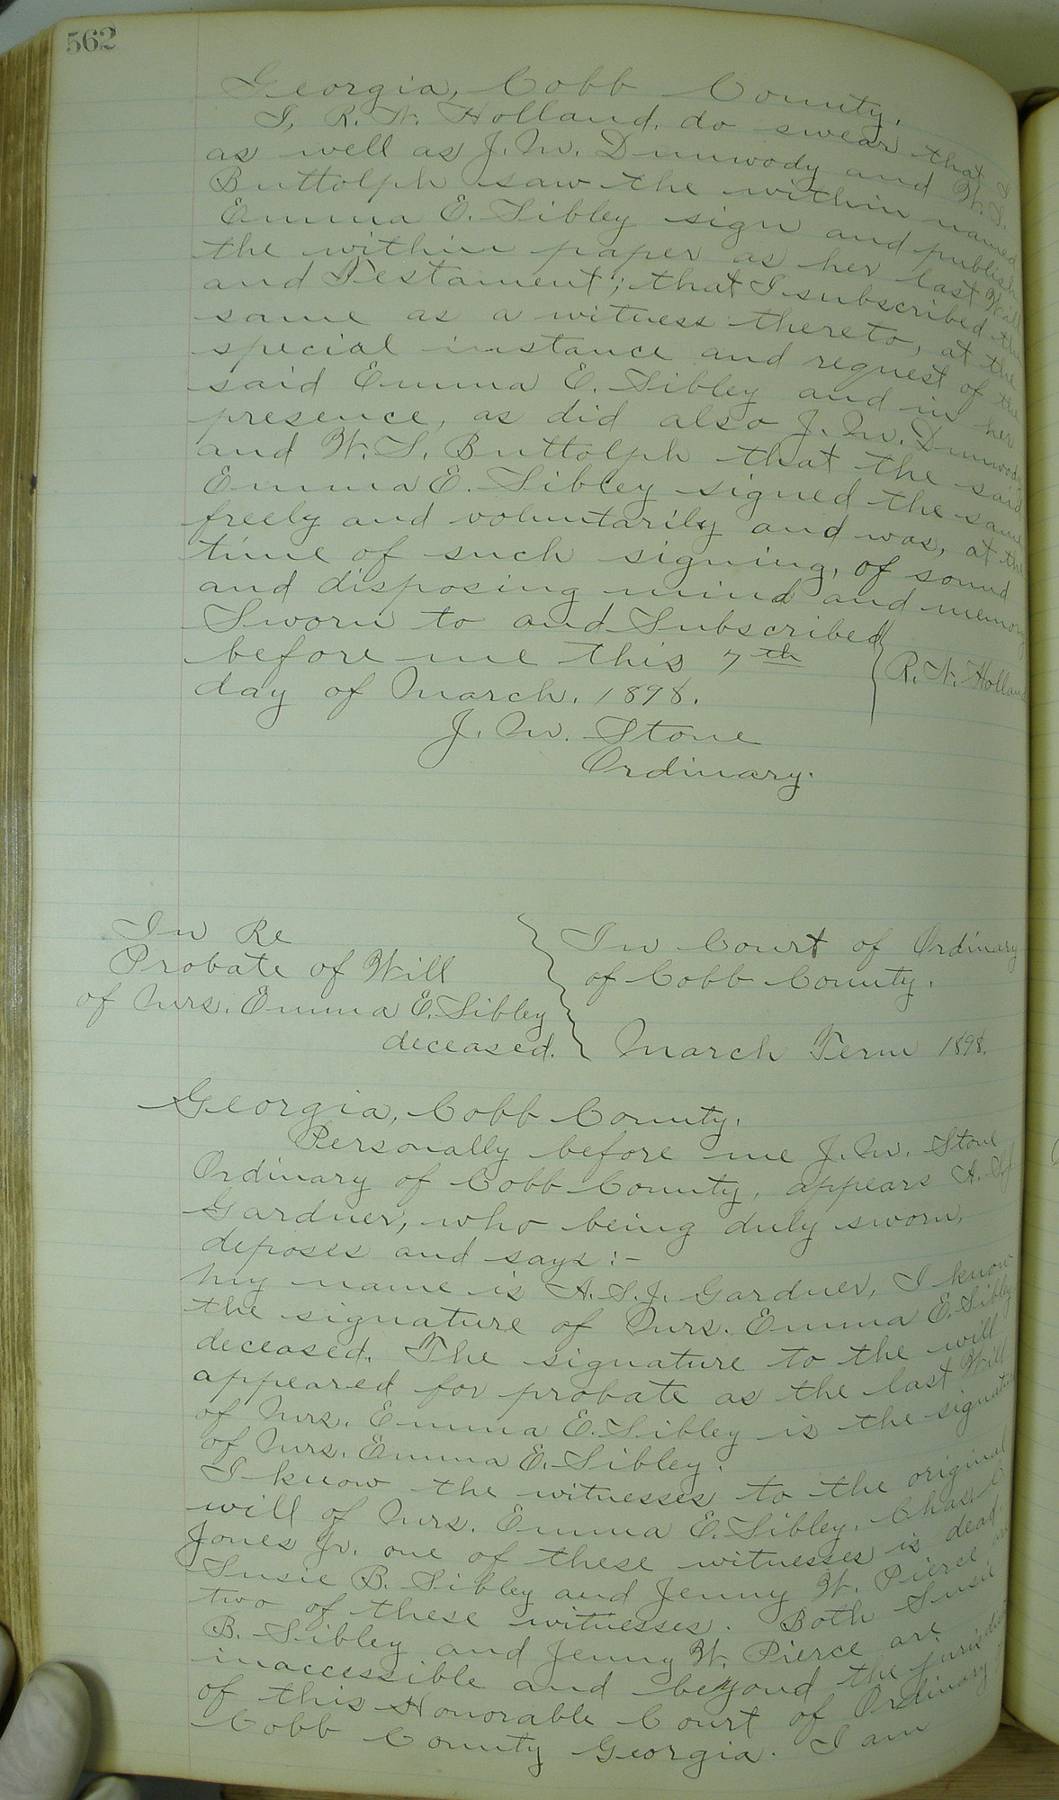 562
Georgia, Cobb County.
I, R. N. Holland, do swear that I
as well as J. M. Dunwody and W. S.
Buttolph saw the within named
Emma E. Sibley sign and publish
the within paper as her last Will
and Testament; that I subscribed the
same as a witness thereto, at the
special instance and request of the
said Emma E. Sibley and in her
presence, as did also J. M. Dunwody
and W. S. Buttolph that the said
Emma E. Sibley signed the same
freely and voluntarily and was, at the
time of such signing, of sound
and disposing mind and memory
Sworn to and Subscribed
before me this 7th
day of March. 1898.
R. N. Holland
J. M. Stone
Ordinary.
In Re
Probate of Will
of Mrs. Emma E. Sibley
deceased.
In Court of Ordinary
of Cobb County.
March Term 1898.
Georgia, Cobb County.
Personally before me J. M. Stone
Ordinary of Cobb County, appears A. S. J.
Gardner, who being duly sworn,
deposes and says:-
My name is A. S. J. Gardner, I know
the signature of Mrs. Emma E. Sibley
deceased. The signature to the will
appeared for probate as the last Will
of Mrs. Emma E. Sibley is the signature
of Mrs. Emma E. Sibley.
I know the witnesses to the original
will of Mrs. Emma E. Sibley. Chas. C
Jones Jr. one of these witnesses is dead.
Susie B. Sibley and Jenny W. Pierce are
two of these witnesses. Both Susie
B. Sibley and Jenny W. Pierce are
inaccessible and beyond the jurisdiction
of this Honorable Court of Ordinary of
Cobb County Georgia. I am